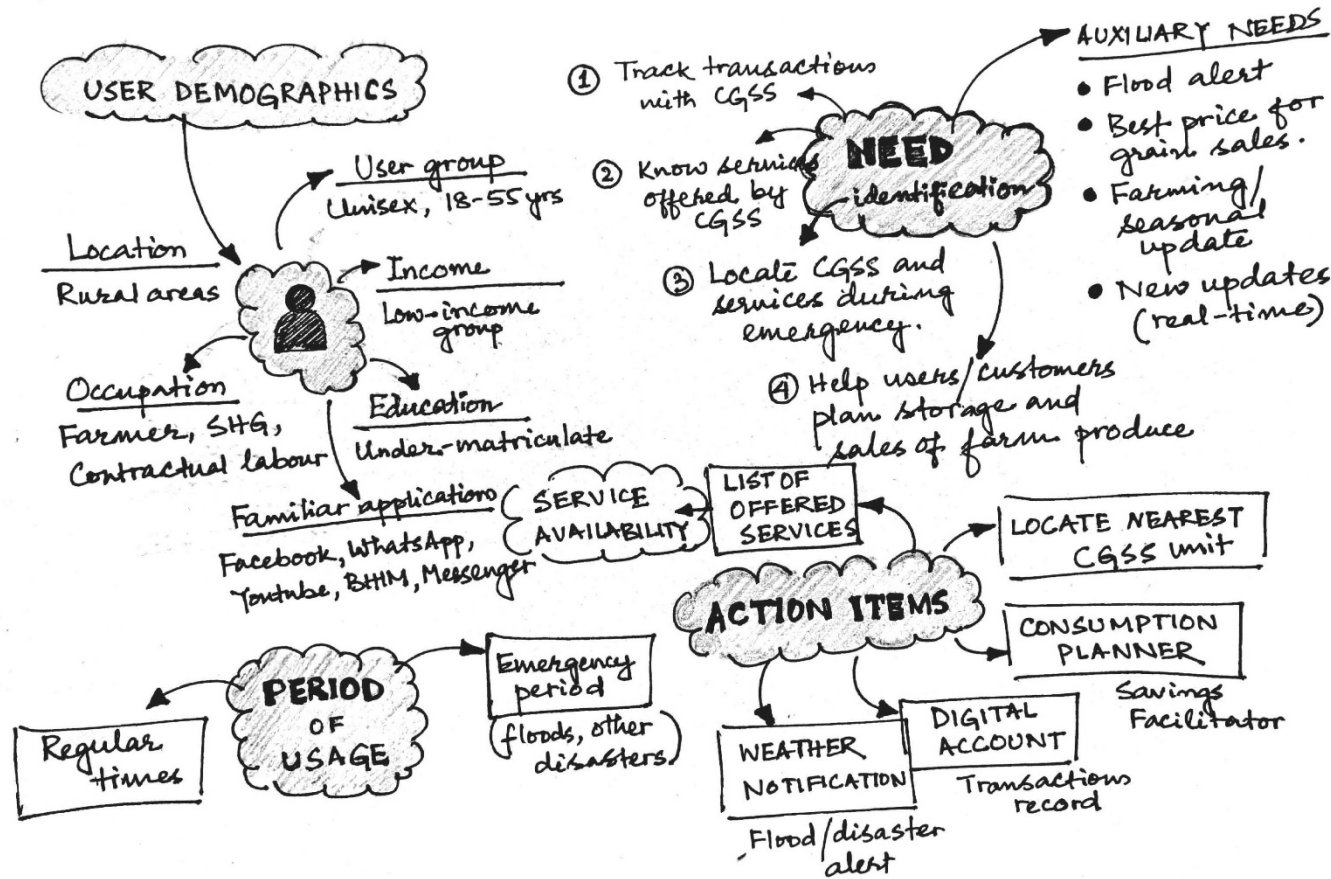 USER DEMOGRAPHICS
User group
Unisex, 18-55 yrs
Location
Rural areas
Income
Low-income
group
Occupation
Farmer, SHG,
Contractual labour
Education
Under-matriculate
Familiar applications
Facebook, WhatsApp,
Youtube, BHIM, Messenger
NEED
identification
① Track transactions
with CGSS
② Know services
offered by
CGSS
③ Locate CGSS and
services during
emergency.
④ Help users/customers
plan storage and
sales of farm produce
AUXILIARY NEEDS
• Flood alert
• Best price for
grain sales.
• Farming/
seasonal
update
• New updates
(real-time)
ACTION ITEMS
LIST OF
OFFERED
SERVICES
SERVICE
AVAILABILITY
LOCATE NEAREST
CGSS unit
CONSUMPTION
PLANNER
Savings
Facilitator
DIGITAL
ACCOUNT
Transactions
record
WEATHER
NOTIFICATION
Flood/disaster
alert
PERIOD
OF
USAGE
Regular
times
Emergency
period
(floods, other
disasters)